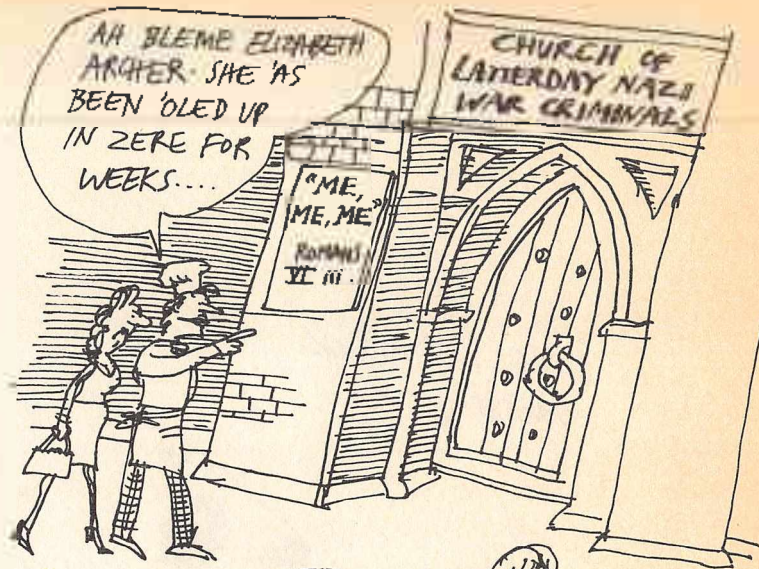 AH BLEME ELIZABETH
ARCHER. SHE 'AS
BEEN 'OLED UP
IN ZERE FOR
WEEKS....
CHURCH OF
LATTERDAY NAZI
WAR CRIMINALS
"ME,
ME, ME"
ROMANS
VI iii.